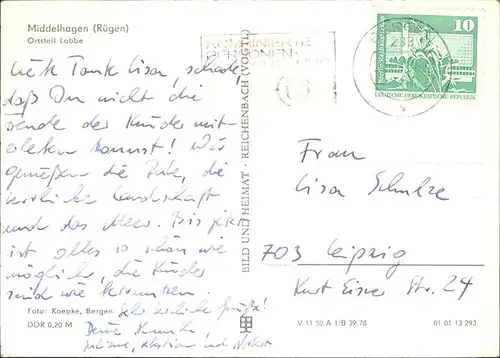 Middelhagen (Rügen)
Ortsteil Lobbe
Tante Lisa, schade,
daß Du nicht die
der Kinder mit-
erleben kannst! Wir
genießen die Ruhe, die
herrliche Landschaft
und das Meer. Bis jetzt
ist alles so schön wie
möglich, die Kinder
sind wie
Foto: Koepke, Bergen
Sehr herzliche Grüße!
DDR 0,20 M
Deine
und Norbert
BILD UND HEIMAT · REICHENBACH (VOGTL)
KOMBINIERTE
PERSONEN-
10
DEUTSCHE DEMOKRATISCHE REPUBLIK
Frau
Lisa Schulze
703 Leipzig
Kurt Eisner Str. 24
V 11 50 A 1/B 39/78
01 01 13 293